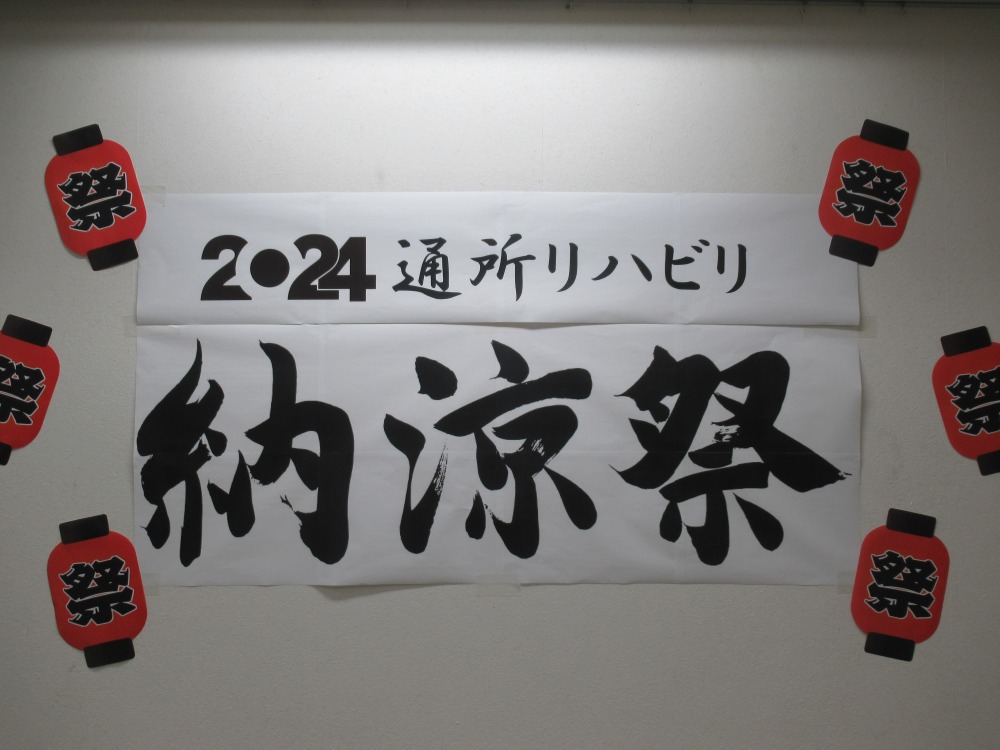 祭
祭
2024 通所リハビリ
祭
祭
納涼祭
祭
祭